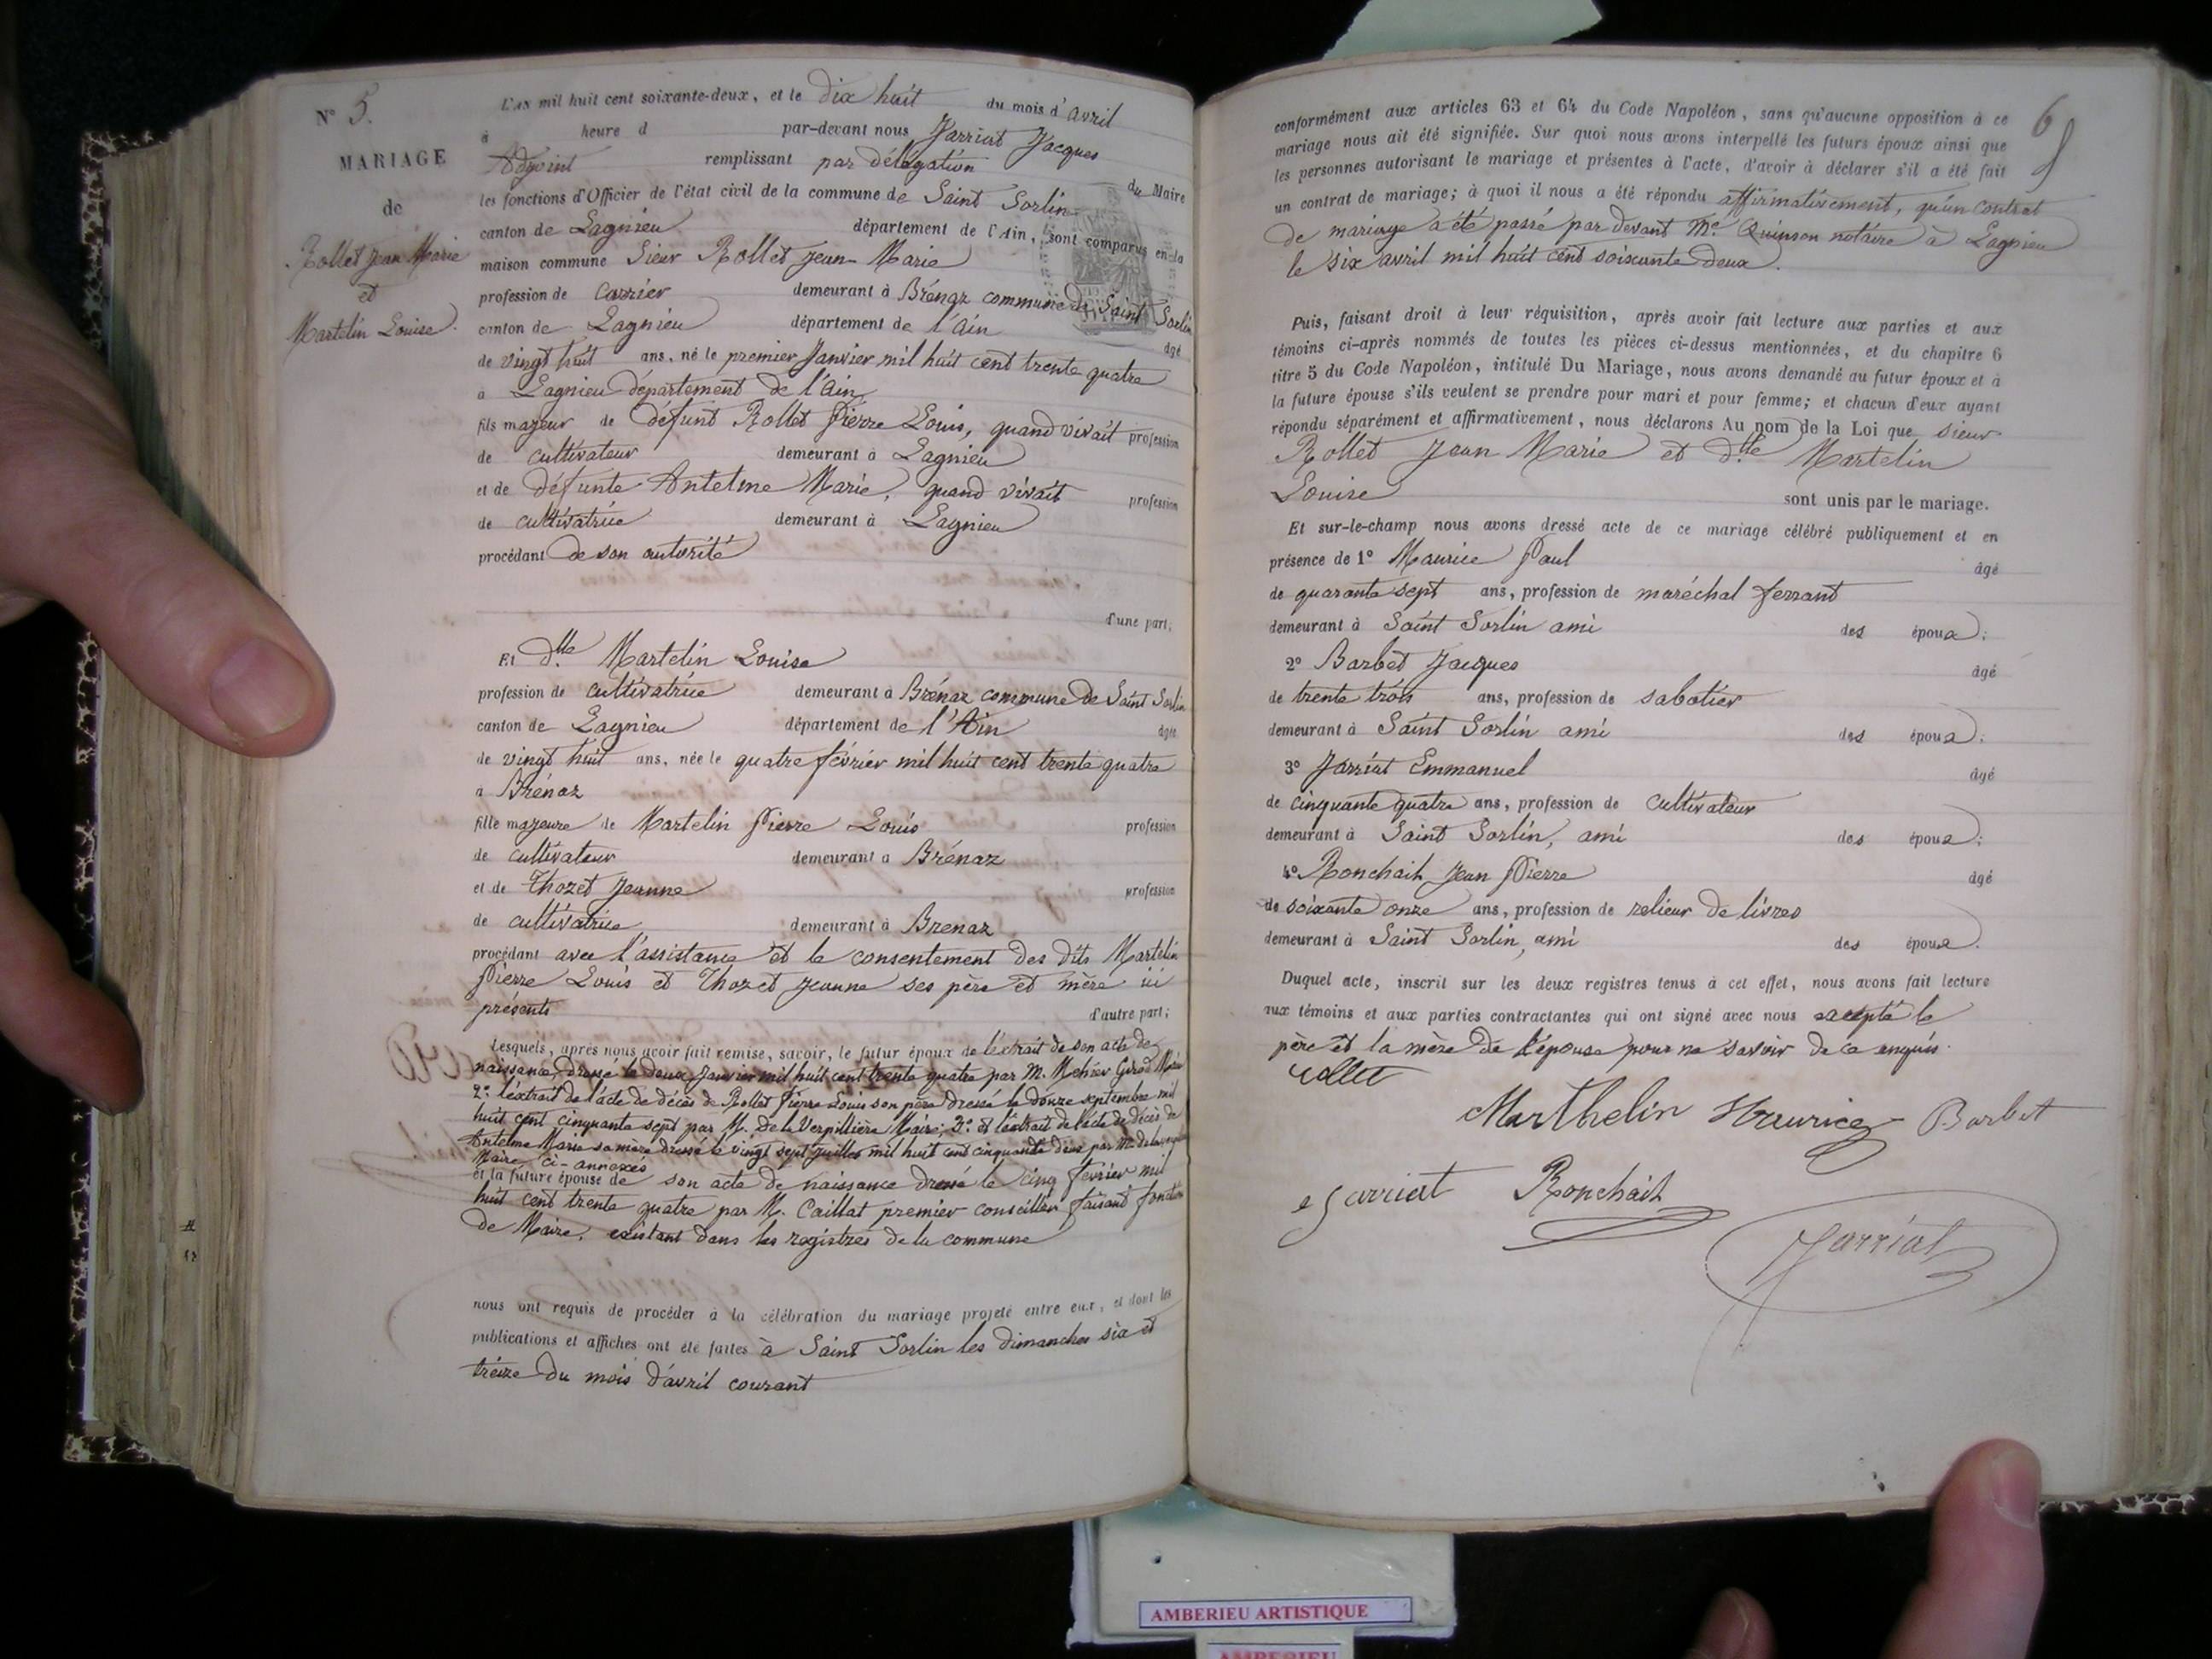 N° 5.
MARIAGE
de
Rollet Jean Marie
et
Martelin Louise.
L'AN mil huit cent soixante-deux, et le dix huit du mois d'avril
à heure d par-devant nous Jarriat Jacques
Adjoint remplissant par délégation du Maire
les fonctions d'Officier de l'état civil de la commune de Saint Sorlin
canton de Lagnieu département de l'Ain, sont comparus en la
maison commune Sieur Rollet Jean-Marie
profession de carrier demeurant à Brénaz commune de Saint Sorlin
canton de Lagnieu département de l'Ain âgé
de vingt huit ans, né le premier Janvier mil huit cent trente quatre
à Lagnieu département de l'Ain
fils majeur de défunt Rollet Pierre Louis, quand vivait profession
de cultivateur demeurant à Lagnieu
et de défunte Antelme Marie, quand vivait profession
de cultivatrice demeurant à Lagnieu
procédant de son autorité
d'une part;
Et dlle Martelin Louise
profession de cultivatrice demeurant à Brénaz commune de Saint Sorlin
canton de Lagnieu département de l'Ain âgée
de vingt huit ans, née le quatre février mil huit cent trente quatre
à Brénaz
fille majeure de Martelin Pierre Louis profession
de cultivateur demeurant à Brénaz
et de Thozet Jeanne profession
de cultivatrice demeurant à Brenaz
procédant avec l'assistance et le consentement des dits Martelin
Pierre Louis et Thozet Jeanne ses père et mère ici
présents d'autre part;
Lesquels, après nous avoir fait remise, savoir, le futur époux de l'extrait de son acte de
naissance, dressé le deux Janvier mil huit cent trente quatre par M. Girod Maire
2° l'extrait de l'acte de décès de Rollet Pierre Louis son père dressé le douze septembre mil
huit cent cinquante sept par M. de la Verpillière Maire; 3° et l'extrait de l'acte de décès de
Antelme Marie sa mère dressé le vingt sept juillet mil huit cent cinquante deux par M.
Maire, ci-annexés
et la future épouse de son acte de naissance dressé le cinq février mil
huit cent trente quatre par M. Caillat premier conseiller faisant fonction
de Maire, existant dans les registres de la commune
nous ont requis de procéder à la célébration du mariage projeté entre eux, et dont les
publications et affiches ont été faites à Saint Sorlin les dimanches six et
treize du mois d'avril courant
6
conformément aux articles 63 et 64 du Code Napoléon, sans qu'aucune opposition à ce
mariage nous ait été signifiée. Sur quoi nous avons interpellé les futurs époux ainsi que
les personnes autorisant le mariage et présentes à l'acte, d'avoir à déclarer s'il a été fait
un contrat de mariage; à quoi il nous a été répondu affirmativement, qu'un contrat
de mariage a été passé par devant Me Quinson notaire à Lagnieu
le six avril mil huit cent soixante deux.
Puis, faisant droit à leur réquisition, après avoir fait lecture aux parties et aux
témoins ci-après nommés de toutes les pièces ci-dessus mentionnées, et du chapitre 6
titre 5 du Code Napoléon, intitulé Du Mariage, nous avons demandé au futur époux et à
la future épouse s'ils veulent se prendre pour mari et pour femme; et chacun d'eux ayant
répondu séparément et affirmativement, nous déclarons Au nom de la Loi que sieur
Rollet Jean Marie et dlle Martelin
Louise sont unis par le mariage.
Et sur-le-champ nous avons dressé acte de ce mariage célébré publiquement et en
présence de 1° Maurice Paul âgé
de quarante sept ans, profession de maréchal ferrant
demeurant à Saint Sorlin ami des époux;
2° Barbet Jacques âgé
de trente trois ans, profession de sabotier
demeurant à Saint Sorlin ami des époux;
3° Jarriat Emmanuel âgé
de cinquante quatre ans, profession de cultivateur
demeurant à Saint Sorlin, ami des époux;
4° Ronchait Jean Pierre âgé
de soixante onze ans, profession de relieur de livres
demeurant à Saint Sorlin, ami des époux.
Duquel acte, inscrit sur les deux registres tenus à cet effet, nous avons fait lecture
aux témoins et aux parties contractantes qui ont signé avec nous excepté le
père et la mère de l'épouse pour ne savoir de ce enquis.
rollet
Marthelin Maurice Barbet
e Jarriat Ronchait
Jarriat
AMBERIEU ARTISTIQUE
AMBERIEU